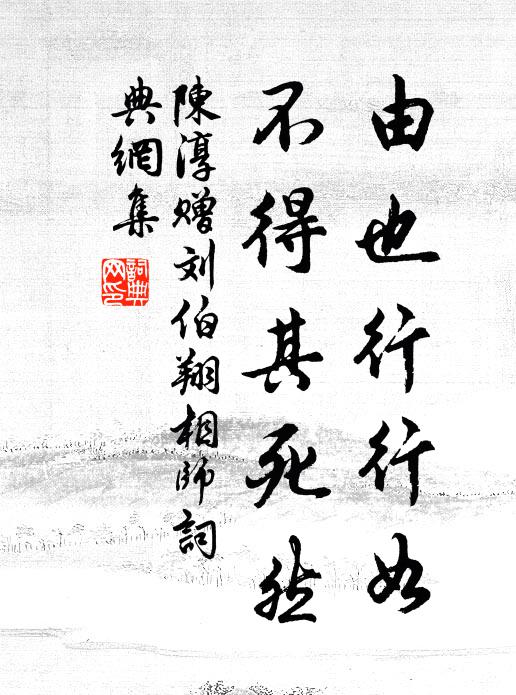 由也行行如
不得其死然
陳淳贈刘伯翔相師詞
典網集
詞典
网印